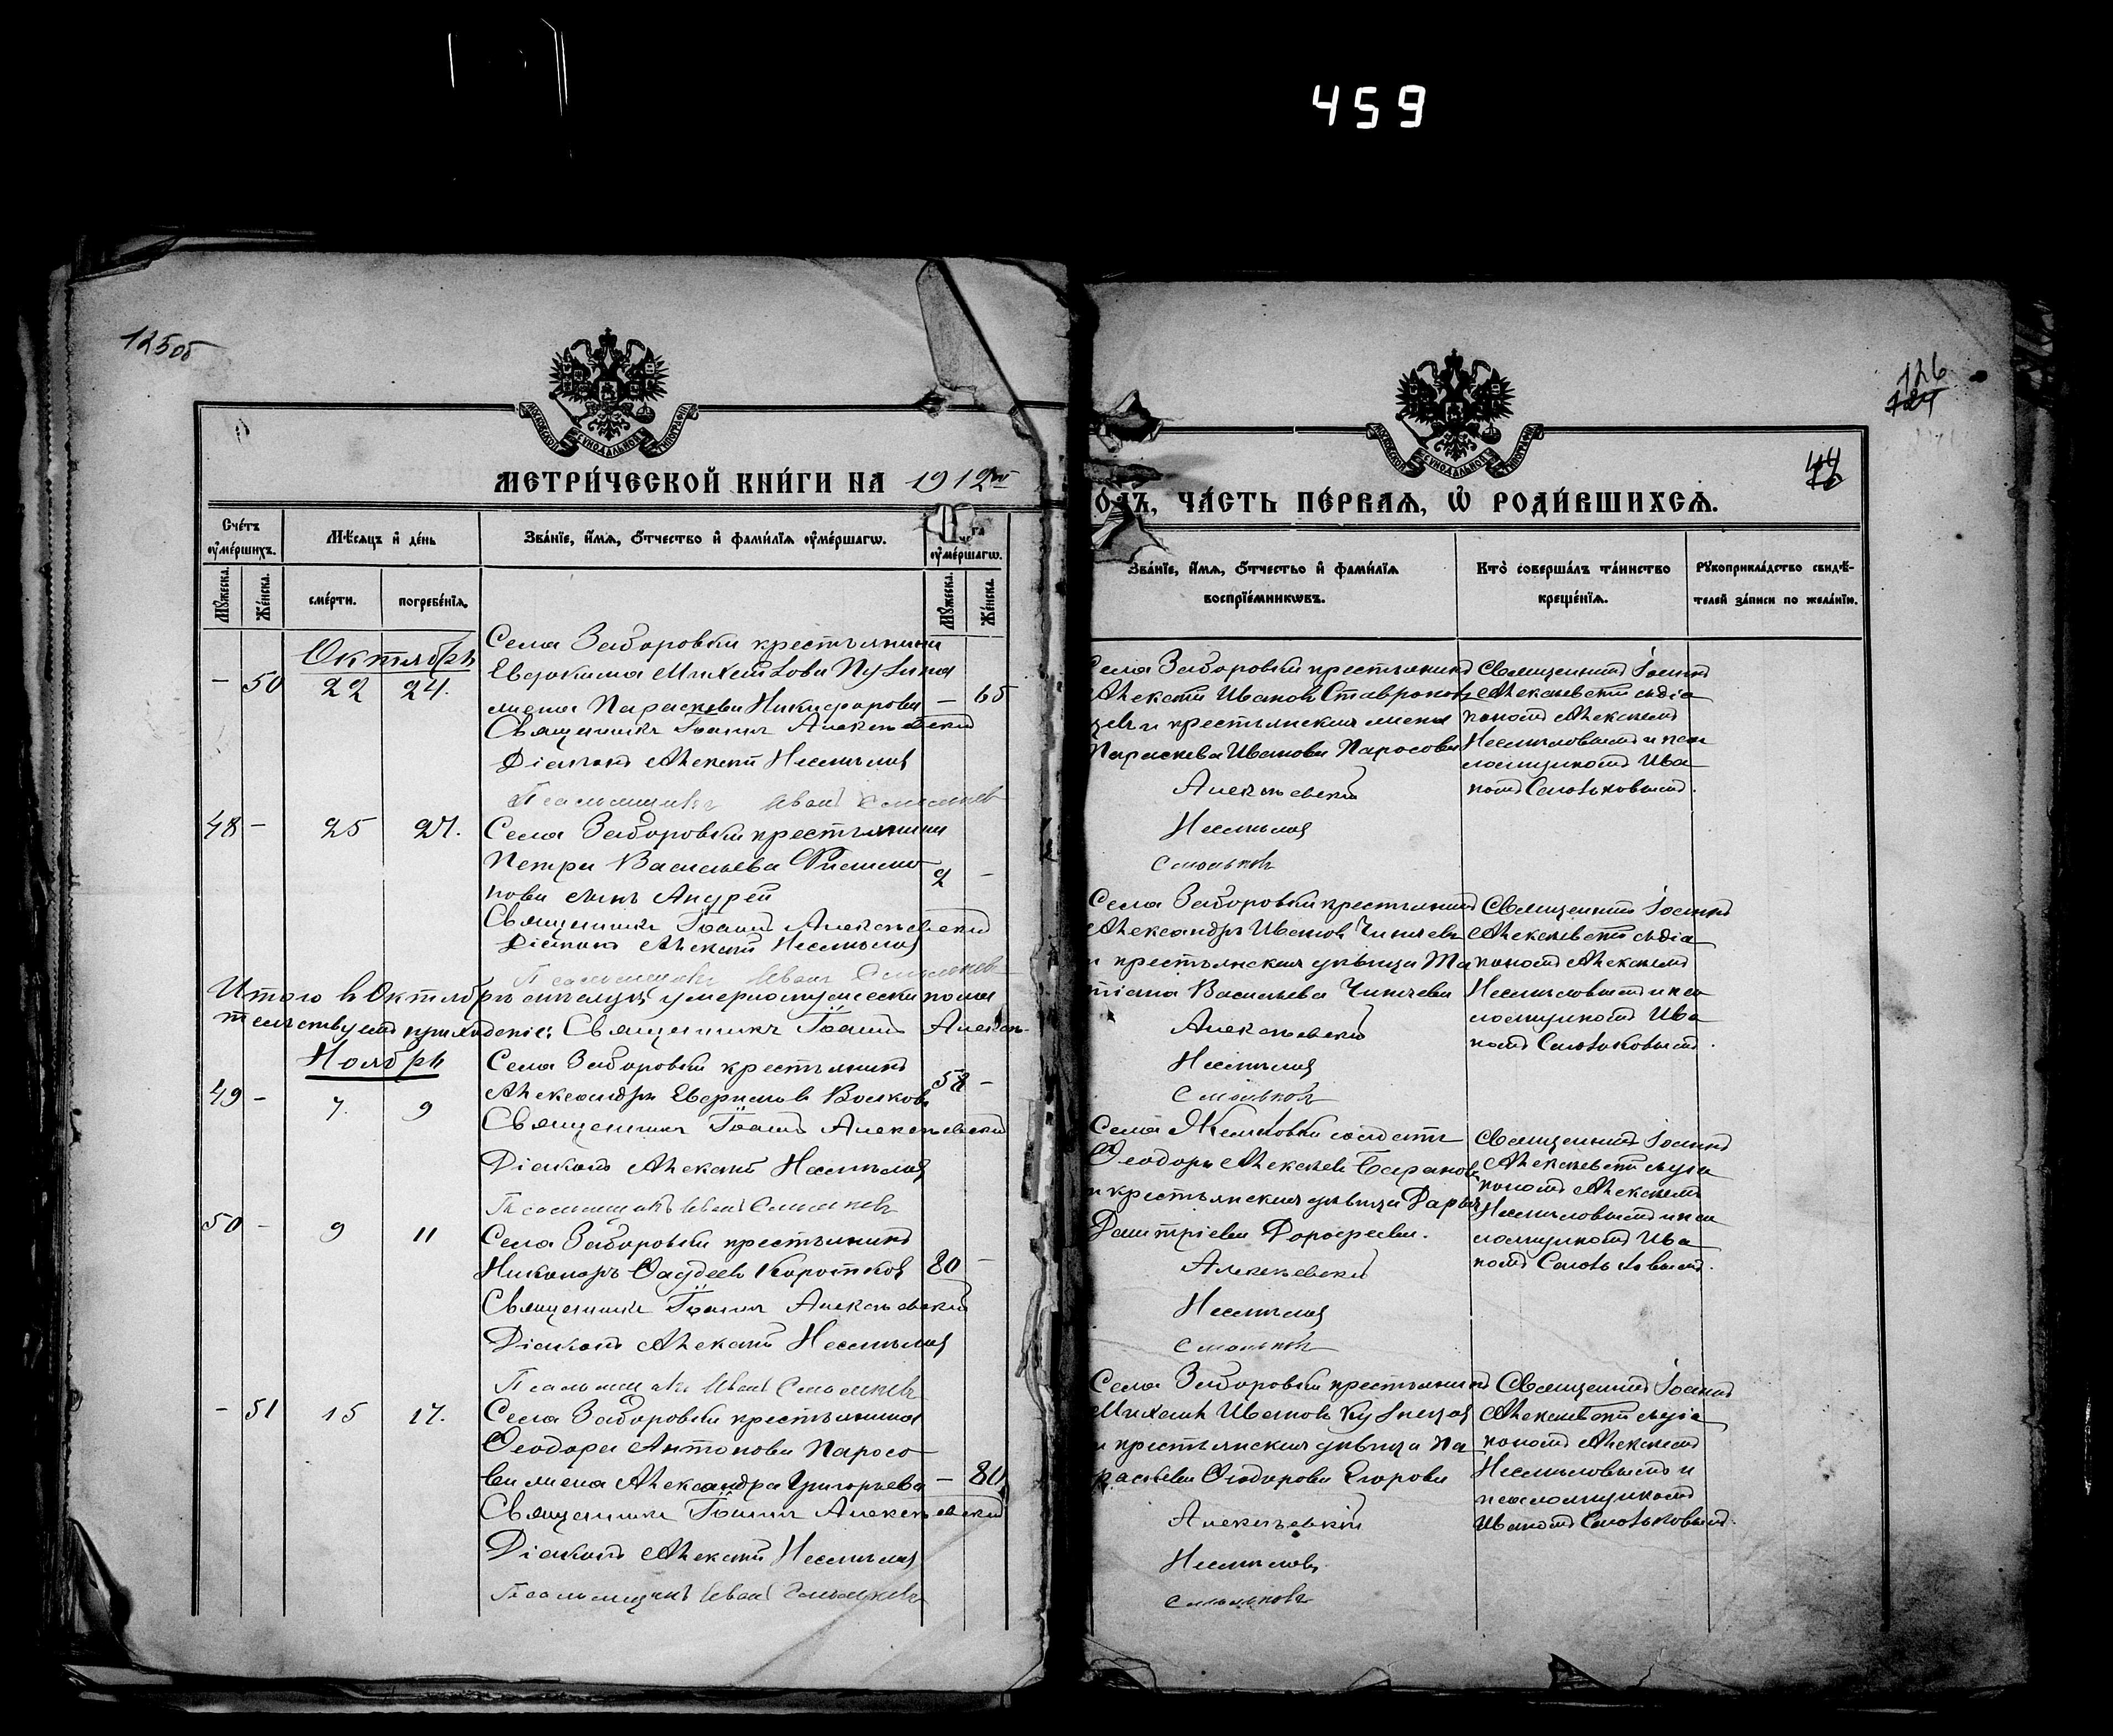 459
125об
МОСКОВСКОЙ СѴНОДАЛЬНОЙ ТИПОГРАФІИ
МЕТРИ́ЧЕСКОЙ КНИ́ГИ НА 1912й
Счéтъ ᲂу҆мéршихъ.
Мѣ́сяцъ и҆ дéнь
Звáнїе, и҆́мѧ, ѻ҆́тчество и҆ фамѝлїѧ ᲂу҆мéршагѡ.
ᲂу҆мéршагѡ.
Мꙋжеска.
Жéнска.
смéрти.
погребéнїѧ.
Мꙋжеска.
Жéнска.
Октябрь
Села Заборовки крестьянина
Евдокима Михайлова Пузина
жена Параскева Никифорова
- 50 22 24. - 65
Священникъ Іоаннъ Алексѣевскій
Діаконъ Алексѣй Несмѣловъ
Псаломщикъ Иванъ Смольковъ
48 - 25 27. Села Заборовки крестьянина
Петра Васильева Филимо
нова сынъ Андрей 2 -
Священникъ Іоаннъ Алексѣевскій
Діаконъ Алексѣй Несмѣловъ
Псаломщикъ Иванъ Смольковъ
Итого въ Октябрѣ мѣсяцѣ умерло мужеска пола
Священникъ Іоаннъ Алексѣ-
Ноябрь
Села Заборовки крестьянинъ
49 - 7. 9 Александръ Евдокимовъ Волковъ 58 -
Священникъ Іоаннъ Алексѣевскій
Діаконъ Алексѣй Несмѣловъ
Псаломщикъ Иванъ Смольковъ
50 - 9 11 Села Заборовки крестьянинъ
Никаноръ Фаддеевъ Коротковъ 80 -
Священникъ Іоаннъ Алексѣевскій
Діаконъ Алексѣй Несмѣловъ
Псаломщикъ Иванъ Смольковъ
- 51 15 17. Села Заборовки крестьянина
Ѳеодора Антонова Паросо
ва жена Александра Григорьева - 80
Священникъ Іоаннъ Алексѣевскій
Діаконъ Алексѣй Несмѣловъ
Псаломщикъ Иванъ Смольковъ
126
МОСКОВСКОЙ СѴНОДАЛЬНОЙ ТИПОГРАФІИ
О́ДЪ, ЧА́СТЬ ПЕ́РВАѦ, Ѽ РОДИ́ВШИХСѦ.
Звáнїе, и҆́мѧ, ѻ҆́тчестьо и҆ фамѝлїѧ воспрїéмникѡвъ.
Ктò совершáлъ тáинство крещéнїѧ.
Рꙋкоприклáдство свидѣ́телей зáписи по желáнїю.
Села Заборовки крестьянинъ
Алексѣй Ивановъ Ставроков
цевъ и крестьянская жена
Параскева Иванова Паросова
Алексѣевскій
Несмѣловъ
Смольковъ
Священникъ Іоаннъ
Алексѣевскій съ діа
кономъ Алексѣемъ
Несмѣловымъ и пса
ломщикомъ Ива
номъ Смольковымъ.
Села Заборовки крестьянинъ
Александръ Ивановъ Чиняевъ
и крестьянская дѣвица Та
тіана Васильева Чиняева
Алексѣевскій
Несмѣловъ
Смольковъ
Священникъ Іоаннъ
Алексѣевскій съ діа
кономъ Алексѣемъ
Несмѣловымъ и пса
ломщикомъ Ива
номъ Смольковымъ.
Села Жемковки солдатъ
Ѳеодоръ Алексѣевъ Барановъ
и крестьянская дѣвица Дарья
Дмитріева Дороѳеева.
Алексѣевскій
Несмѣловъ
Смольковъ
Священникъ Іоаннъ
Алексѣевскій съ діа
кономъ Алексѣемъ
Несмѣловымъ и пса
ломщикомъ Ива
номъ Смольковымъ.
Села Заборовки крестьянинъ
Михаилъ Ивановъ Кузнецовъ
и крестьянская дѣвица Па
раскева Ѳеодорова Егорова
Алексѣевскій
Несмѣловъ
Смольковъ
Священникъ Іоаннъ
Алексѣевскій съ діа
кономъ Алексѣемъ
Несмѣловымъ и
псаломщикомъ
Иваномъ Смольковымъ.